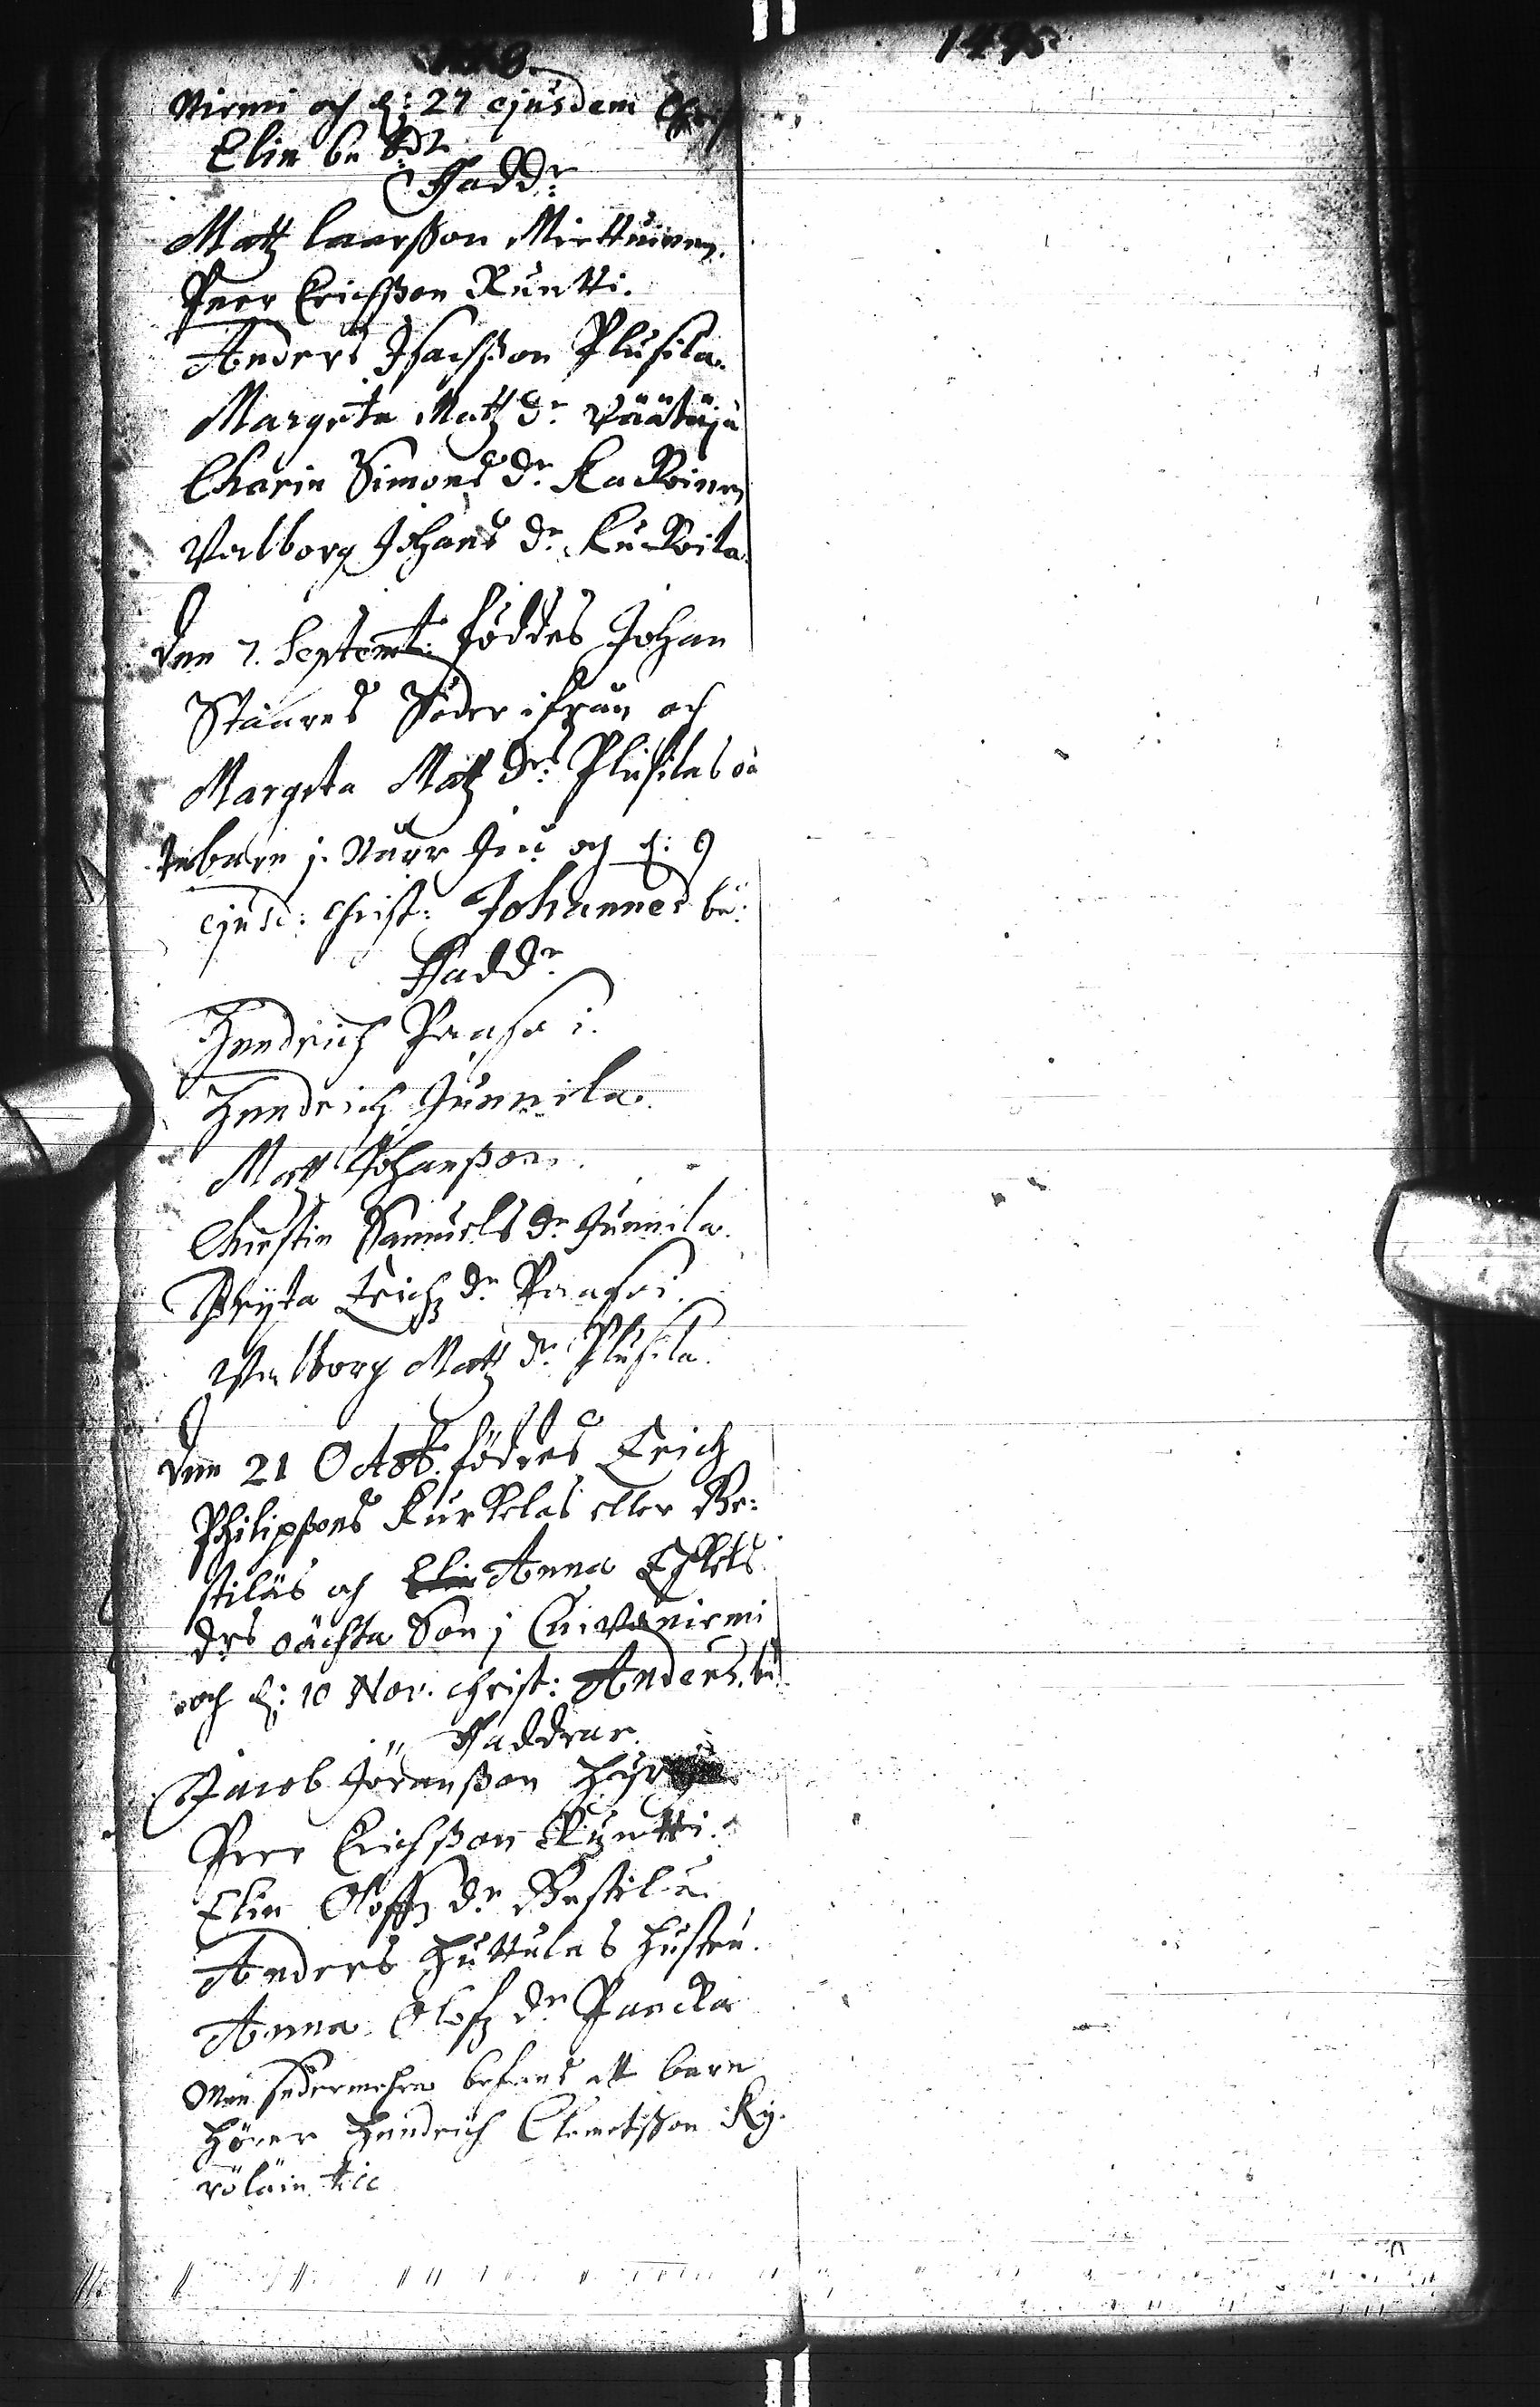 148.
149.
Nirmi och d: 27 ejusdem Christ
Elin be ddt
Fadd:r
Matz Larsson Miettuinen.
Peer Erichsson Runtti.
Anders Isachsson Plusila.
Margeta Matz dr Väätäjä
Charin Simons dr Kackoinen
Valborg Johans dr Kurkoila
Den 7. Septemb: föddes Johan
Staares Söder ifrån och
Margeta Matz drs Plusilas oä
kebarn j. Nurr och d: 9
ejusd: Christ: Johannes be:
Fadd:r
Hendrich Paaso i.
Hendrich Junnila.
Matz Johansson.
Chirstin Samuels dr Junnila.
Bryta Erichz dr Paasoi.
Valborg Matz dr Plusila.
Den 21 Octob. föddes Erich
Philipssons Kurkelas eller Be-
stiläs och Elin Anna Eskels
drs oächta Son j Caivanirmi
och d: 10 Nov. Christ: Anders. be
Faddrar.
Jacob Jöransson
Peer Erichsson Runtti.
Elin Oloffz dr Bestilä.
Anders Huttulas hustru.
Anna Olofz dr Pancka
Men sedermehra befans att barn
hörer Hendrich Clemetsson Ky-
röläin till